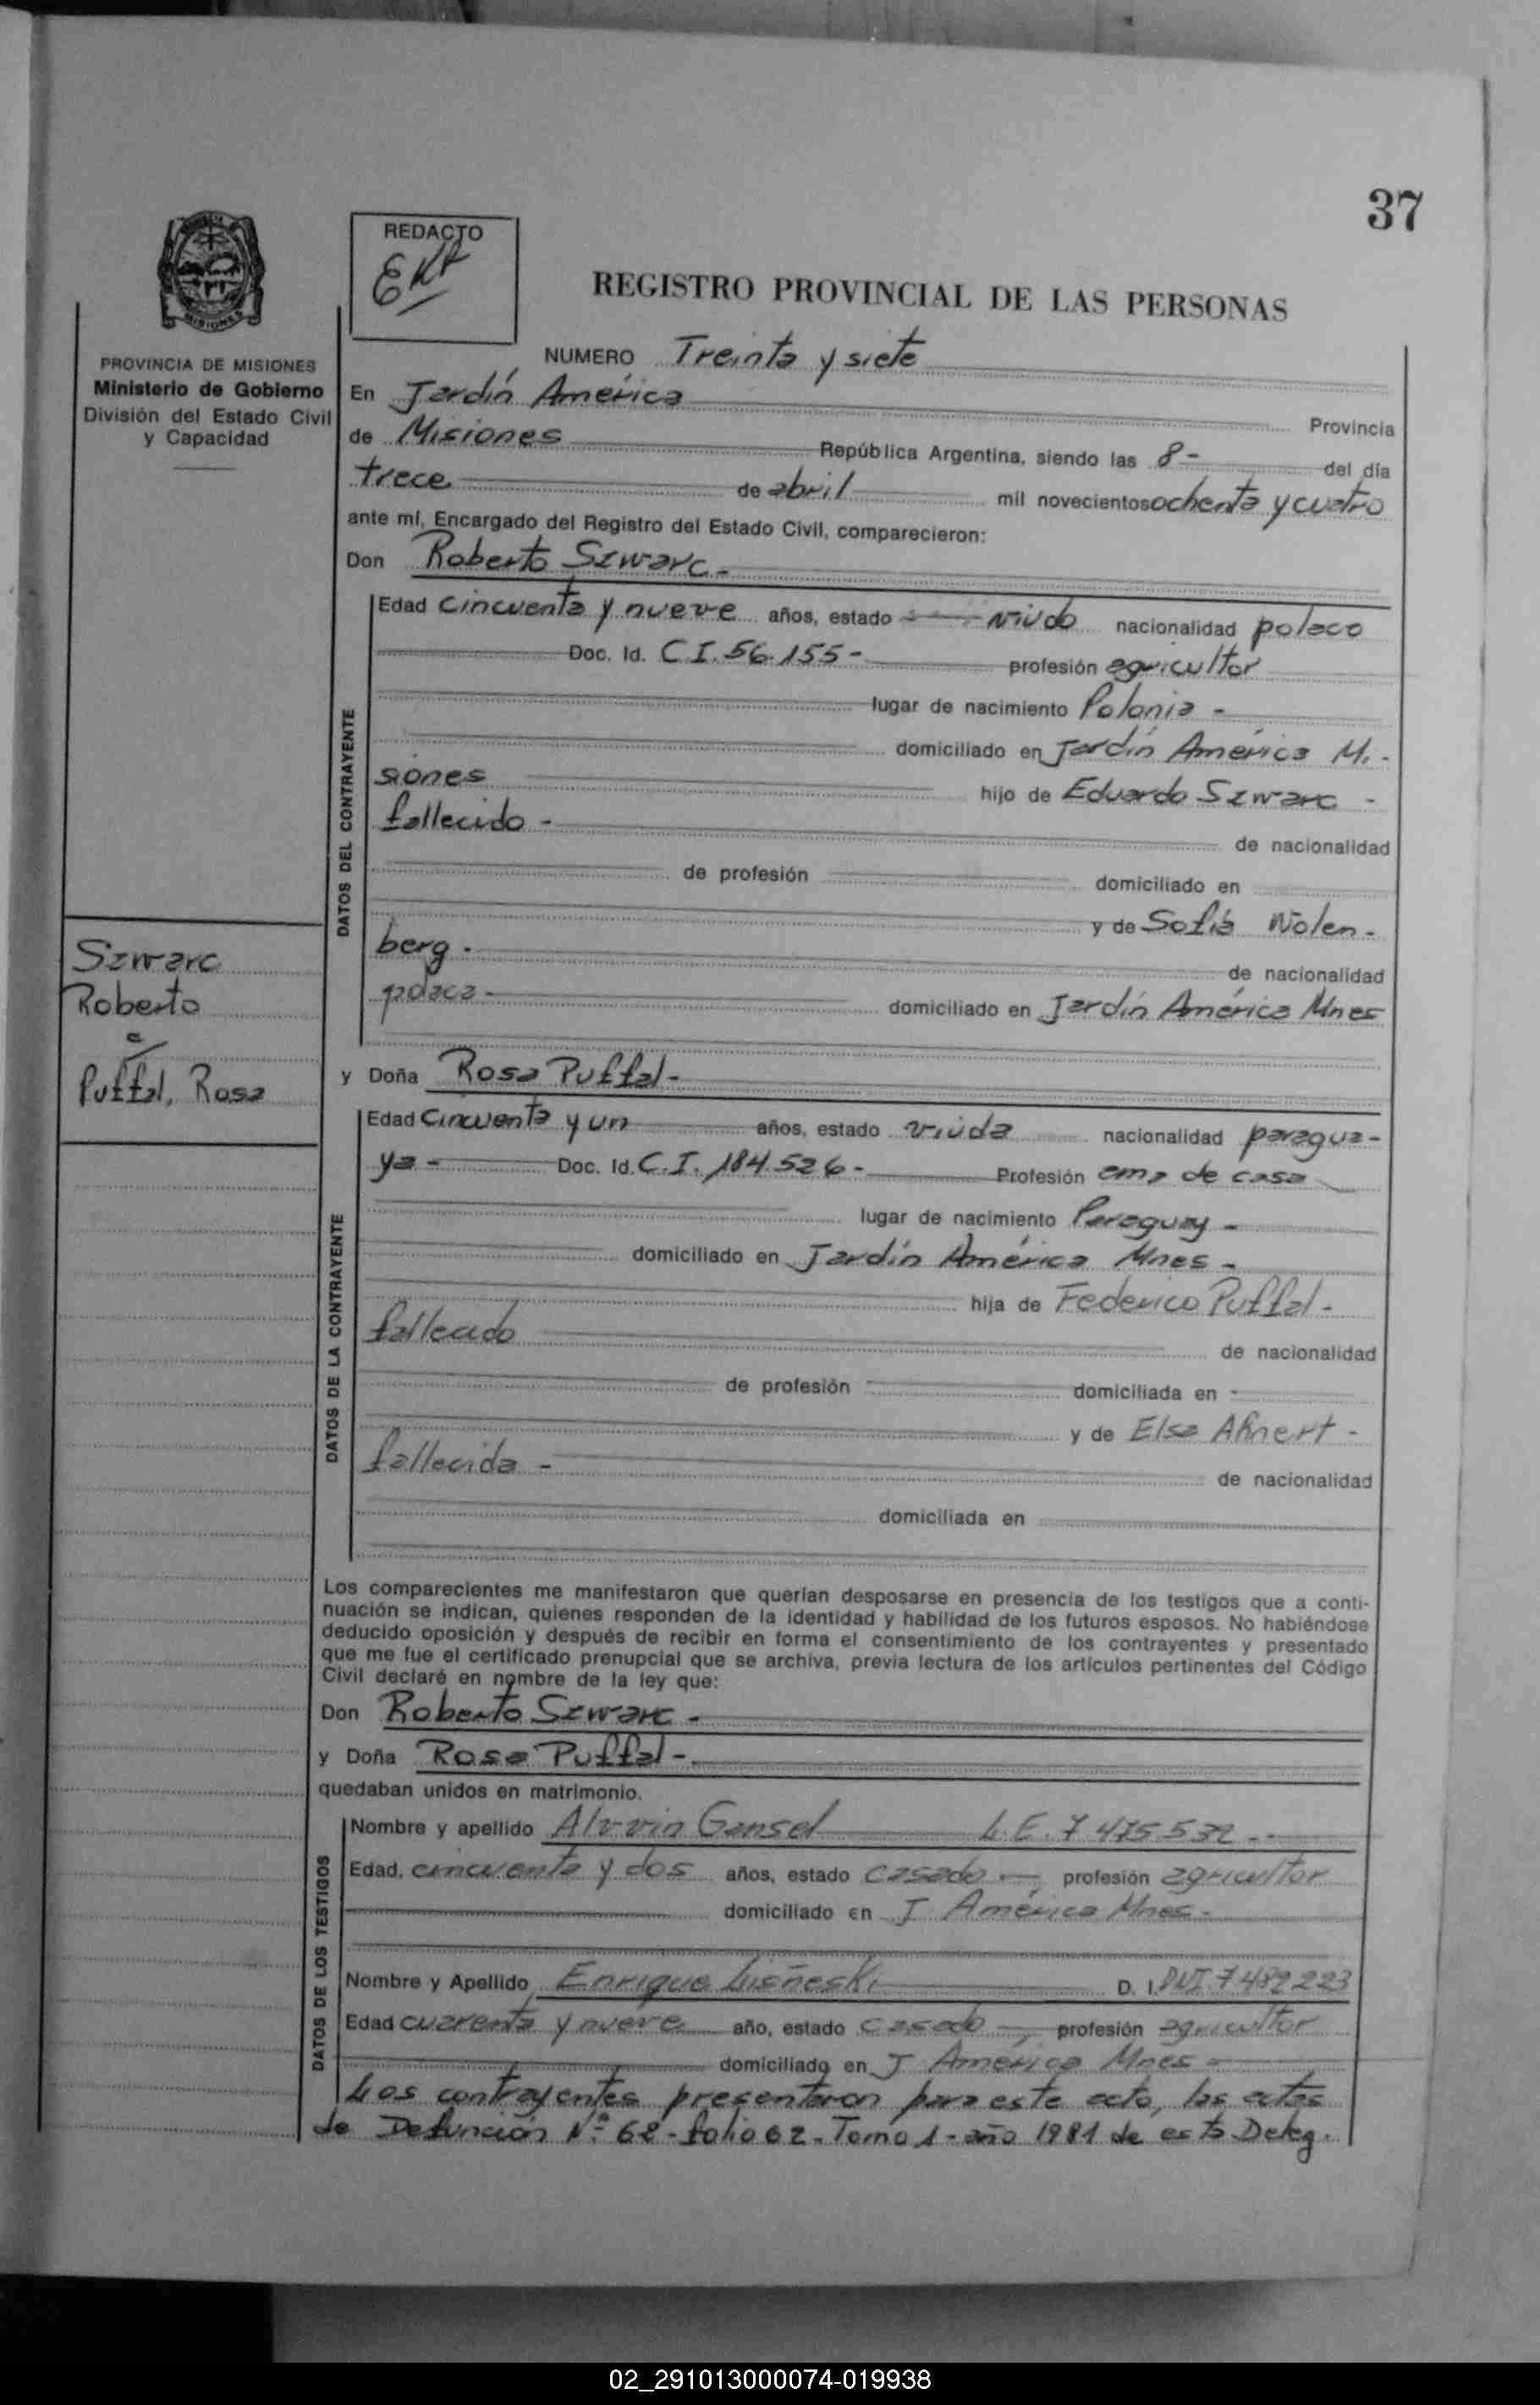 37
REDACTO
REGISTRO PROVINCIAL DE LAS PERSONAS
MISIONES
PROVINCIA DE MISIONES
Ministerio de Gobierno
División del Estado Civil
y Capacidad
NUMERO Treinta y siete
En Jardín América Provincia
de Misiones República Argentina, siendo las 8- del día
trece de abril mil novecientos ochenta y cuatro
ante mí, Encargado del Registro del Estado Civil, comparecieron:
Don Roberto Szwarc.-
DATOS DEL CONTRAYENTE
Edad cincuenta y nueve años, estado viudo nacionalidad polaco
Doc. Id. C.I. 56.155- profesión agricultor
lugar de nacimiento Polonia -
domiciliado en Jardín América Mi.-
siones hijo de Eduardo Szwarc -
fallecido - de nacionalidad
de profesión domiciliado en
y de Sofía Wolen-
berg. de nacionalidad
polaca- domiciliado en Jardín América Mnes
Szwarc
Roberto
c/
Puffal, Rosa
y Doña Rosa Puffal-
DATOS DE LA CONTRAYENTE
Edad cincuenta y un años, estado viuda nacionalidad paragua-
ya - Doc. Id. C.I. 184.526- Profesión ama de casa
lugar de nacimiento Paraguay -
domiciliado en Jardín América Mnes -
hija de Federico Puffal-
fallecido de nacionalidad
de profesión domiciliada en -
y de Elsa Ahnert -
fallecida - de nacionalidad
domiciliada en
Los comparecientes me manifestaron que querían desposarse en presencia de los testigos que a conti-
nuación se indican, quienes responden de la identidad y habilidad de los futuros esposos. No habiéndose
deducido oposición y después de recibir en forma el consentimiento de los contrayentes y presentado
que me fue el certificado prenupcial que se archiva, previa lectura de los artículos pertinentes del Código
Civil declaré en nombre de la ley que:
Don Roberto Szwarc -
y Doña Rosa Puffal-
quedaban unidos en matrimonio.
DATOS DE LOS TESTIGOS
Nombre y apellido Alvvin Gansel L.E. 7 475 532 --
Edad, cincuenta y dos años, estado casado - profesión agricultor
domiciliado en J América Mnes-
Nombre y Apellido Enrique Lisñeski D. I. DNI 7 482 223
Edad cuarenta y nueve año, estado casado - profesión agricultor
domiciliado en J América Mnes -
Los contrayentes presentaron para este acto, las actas
de Defunción Nº 62 - folio 62 - Tomo 1 - año 1981 de esta Deleg.
02_291013000074-019938